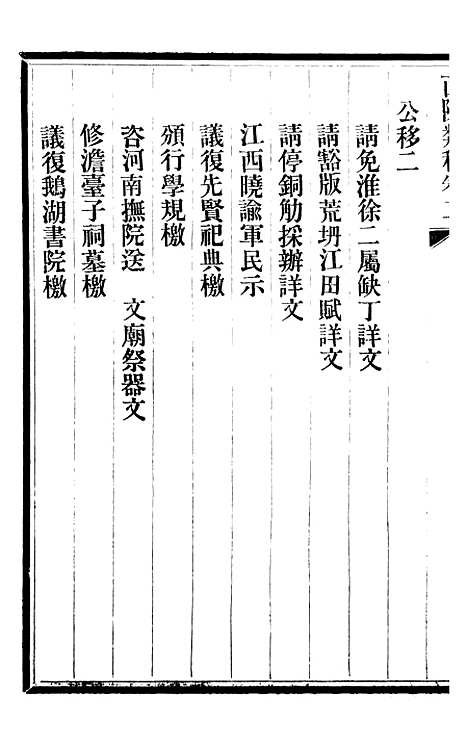 公移二
請免淮徐二屬缺丁詳文
請豁版荒坍江田賦詳文
請停銅觔採辦詳文
江西曉諭軍民示
議復先賢祀典檄
頒行學規檄
咨河南撫院送　文廟祭器文
修澹臺子祠墓檄
議復鵝湖書院檄